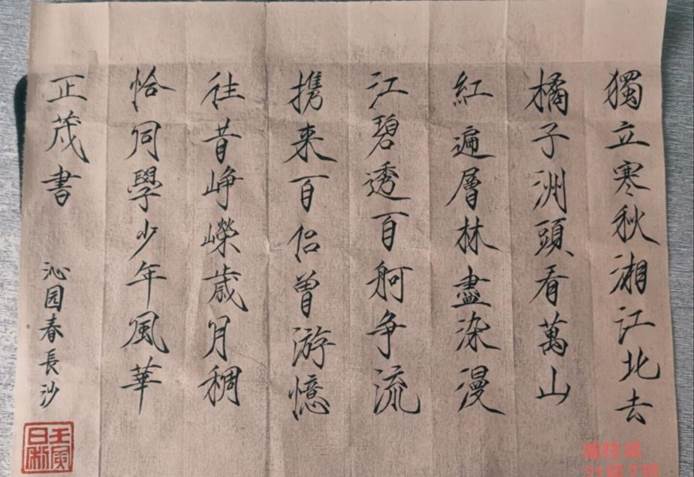 獨立寒秋湘江北去
橘子洲頭看萬山
紅遍層林盡染漫
江碧透百舸争流
携来百侣曾游憶
往昔崢嶸歲月稠
恰同學少年風華
正茂書
沁园春長沙